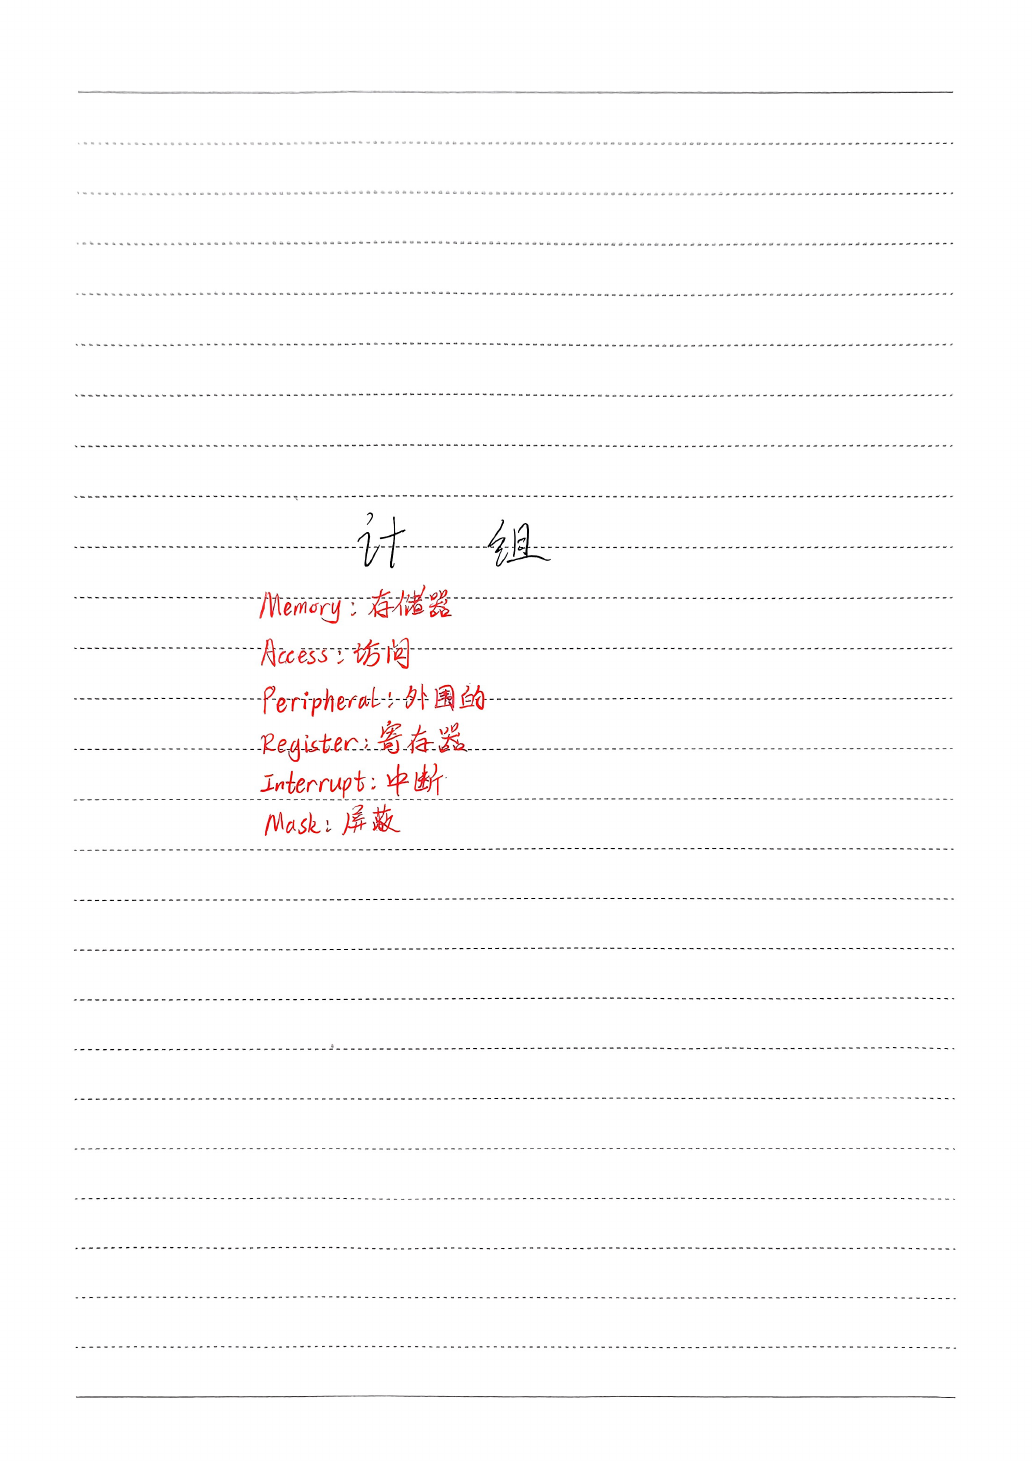 计 组
Memory: 存储器
Access: 访问
Peripheral: 外围的
Register: 寄存器
Interrupt: 中断
Mask: 屏蔽